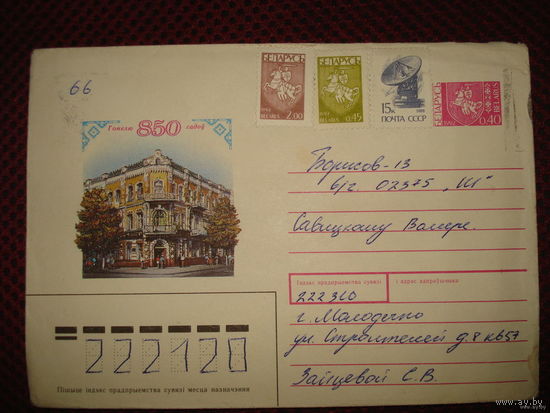 66
БЕЛАРУСЬ
1992 BELARUS 2.00
БЕЛАРУСЬ
1992 BELARUS 0.45
15к
1988
ПОЧТА СССР
БЕЛАРУСЬ
1992
BELARUS
0.40
Гомелю 850 гадоў
Борисов-13
в/ч 02375 "Ш"
Савицкому Валере.
Індэкс прадпрыемства сувязі і адрас адпраўшчыка
222310
г. Молодечно
ул. Строителей д. 8 кв57
Зайцевой С. В.
222120
Пішыце індэкс прадпрыемства сувязі месца назначэння
www.ay.by